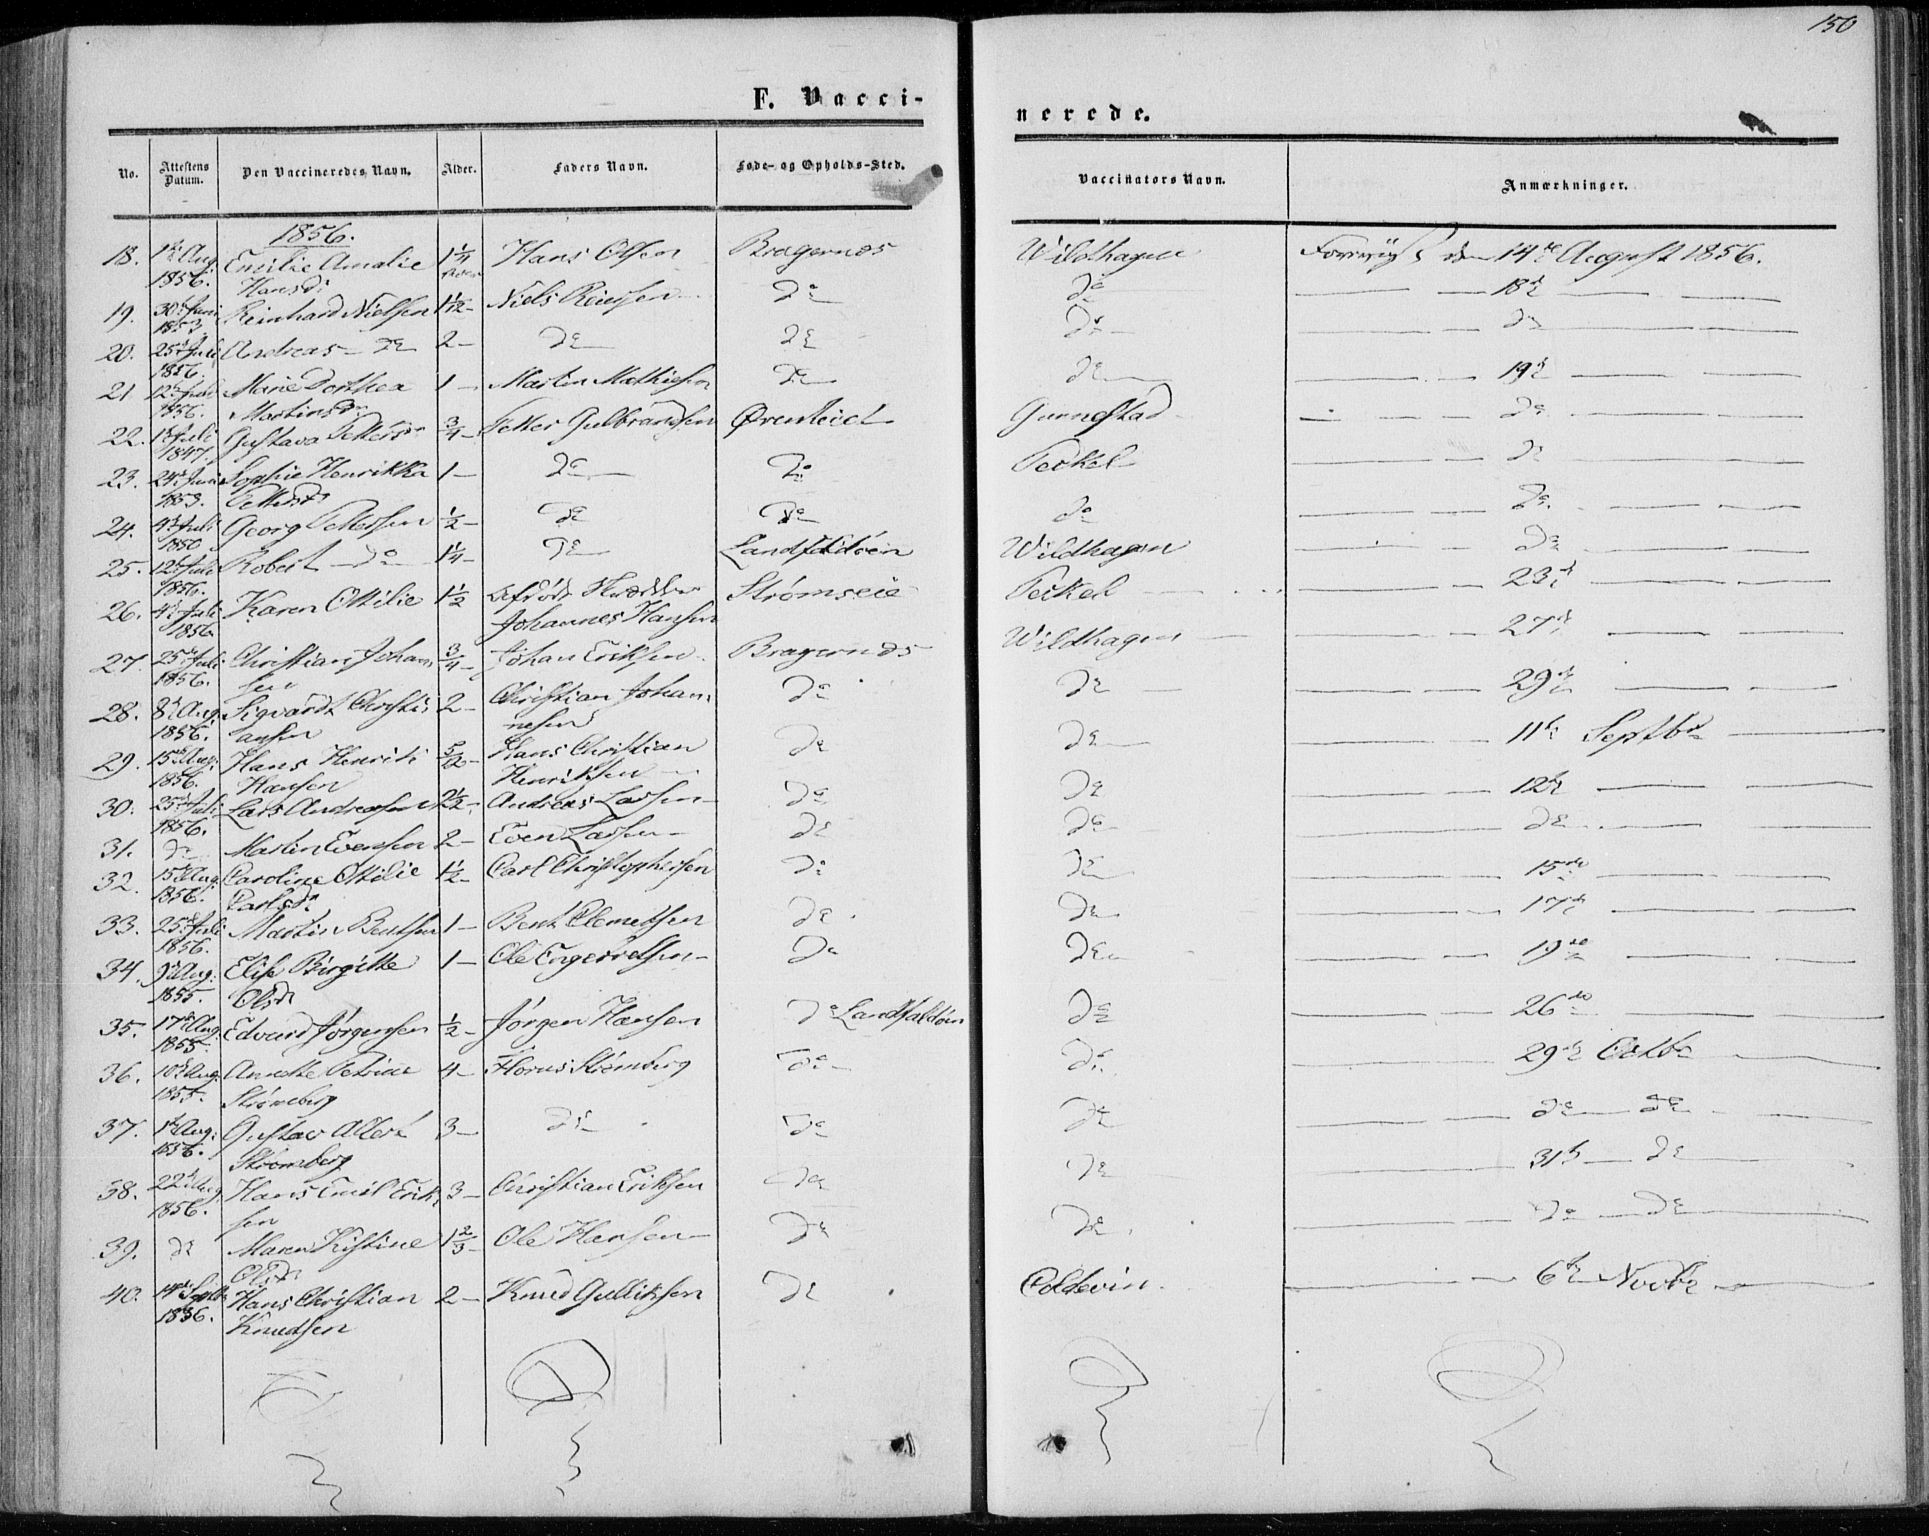 150
F. Vacci-
nerede.
No. Attestens Datum. Den Vaccineredes Navn. Alder. Faders Navn. Føde- og Opholds-Sted. Vaccinators Navn. Anmærkninger.
1856.
18. 1ste Aug. Emilie Amalie 1 1/4 Hans Olsen Bragernæs Wildhagen den 14de August 1856.
1856. Hansdr
19. 30te Juni Reinhard Nielsen 1 1/2 - Niels Reinsen do do — 18de —
1853
20. 25de Juli Andreas - do 2 - do do do — do —
1856.
21 12te Juli Marie Dorthea 1 - Marten Mathiesen do do — 19de —
1856. Martinsdr
22. 1ste Juli Gustava Pettersdr 3/4 - Petter Gulbrandsen Ørenleiel Gunnestad — do —
1847.
23. 24de Juni Sophie Henrikka 1 - do do Peckel — do —
1853. Pettersdr
24. 4de Juli Georg Pettersen 1/2 - do do do — do —
1850
25. 12te Juli Robert - do 1 1/4 - do Landfaldøen Wildhagen — do —
1856.
26. 4de Juli Karen Ottilie 1 1/2 Strømsøe Peckel — 23de —
1856. Johannes Hansen
27. 25de Juli Christian Johan- 3/4 - Johan Eriksen Bragernæs Wildhagen — 27de —
1856. sen
28. 8de Aug. Sigvardt Christi- 2 - Christian Johan- do do — 29de —
1856. ansen nesen
29. 15de Aug. Hans Henrik 5/12 - Hans Christian do do — 11te Septbr —
1856. Hansen Henriksen
30. 25de Juli Lars Andreasen 2 1/2 - Andreas Larsen - do do — 12te —
1856.
31. do Martin Evensen 2 - Even Larsen - do do — do —
32. 15de Aug. Caroline Ottilie 1 1/2 - Carl Christophersen do do — 15de —
1856. Carlsdr
33. 25de Juli Martin Bentsen 1 - Bent Clemetsen do do — 17de —
1856.
34. 9de Aug. Elise Birgitte 1 - Ole Engebretsen - do do — 19de —
1855. Olsdr
35. 17de Aug. Edvard Jørgensen 1/2 - Jørgen Hansen do Landfaldøen do — 26de —
1855.
36. 10de Aug. Anette Petrine 4 - Strømberg do do — 29de Octbr
1855. Strømberg
37. 1ste Aug. Gustav Albert 3 - do do do — do — do
1856. Strømberg
38. 22de Aug. Hans Emil Erik- 3 - Christian Eriksen do do — 31te — do
1856. sen
39. do Maren Kristine 1 2/3 - Ole Hansen - do do — do — do
Olsdr
40. 14de Septbr Hans Christian 2 - Knud Gulliksen do Coldevin. — 6te Novbr —
1856. Knudsen